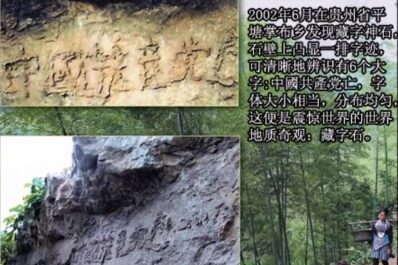 2002年6月在贵州省平
塘掌布乡发现藏字神石,
石壁上凸显一排字迹,
可清晰地辨识有6个大
字:中國共產党亡,字
体大小相当,分布均匀.
这便是震惊世界的世界
地质奇观:藏字石。
中國共産党